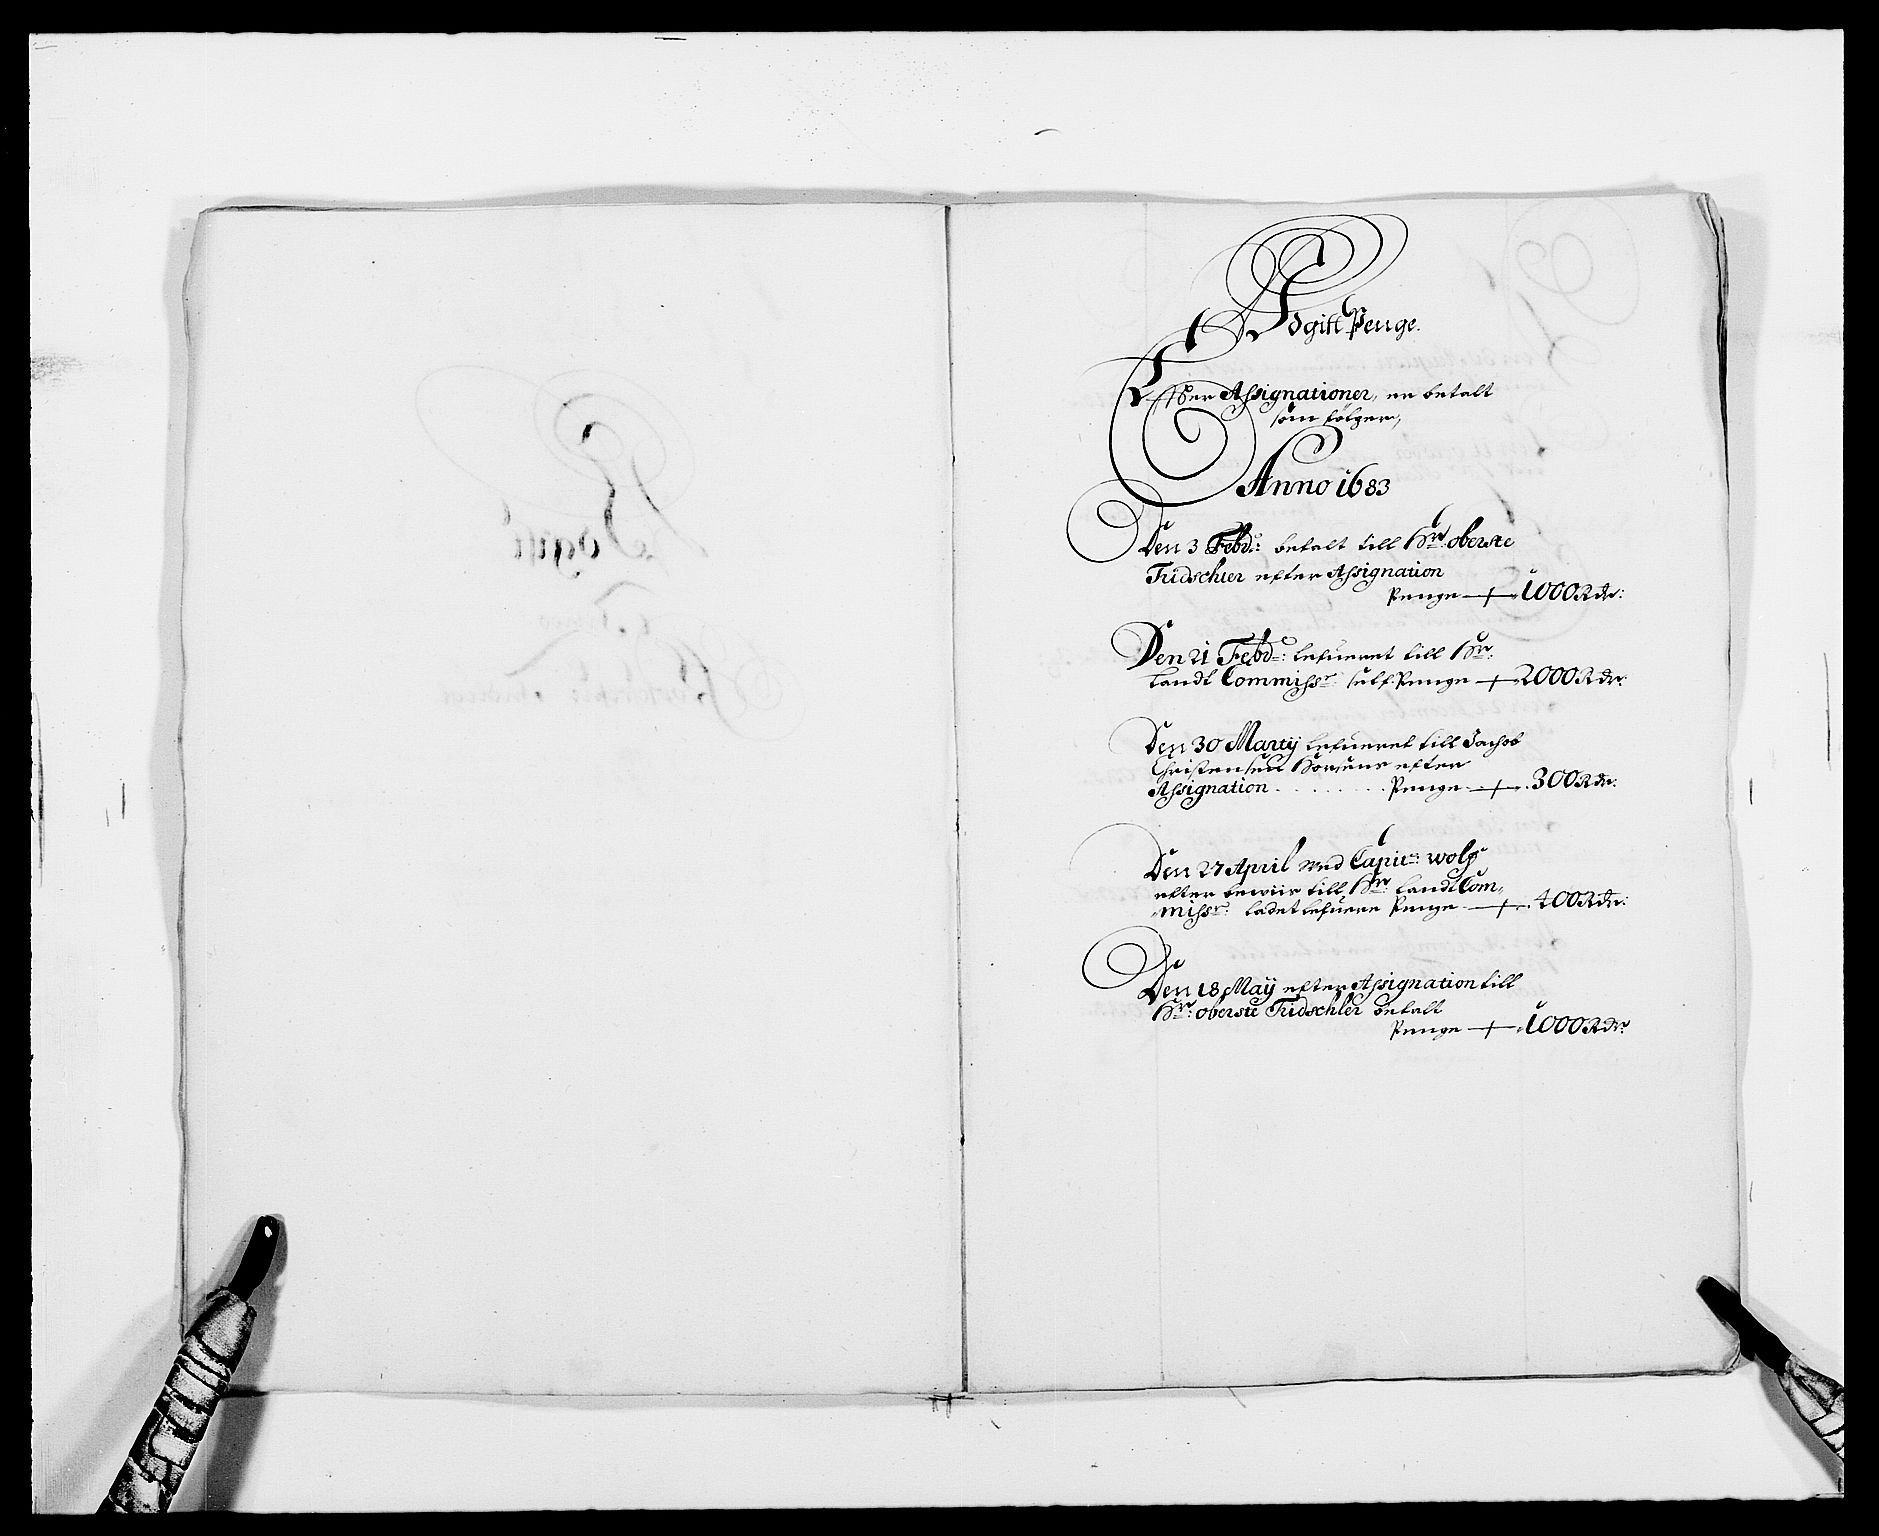 Udgifft Penge.
Efter Assignationer, er betalt
som følger,
Anno 1683
Den 3 Febr: betalt till Hr: oberste
Tridschler efter Assignation
Penge 1000 Rdr:
Den 21 Febr: lefueret till Hr:
Landt Commissr: sielf. Penge 2000 Rdr:
Den 30 Marty lefueret till Jachob
Christensen Horsens efter
Assignation Penge 300 Rdr:
Den 27 April ved Capit: wolf
efter beviis till Hr: Landt Com-
missr: ladet lefuere Penge 400 Rdr:
Den 18 Maÿ efter Assignation till
Hr: oberste Tridschler betalt
Penge 1000 Rdr: